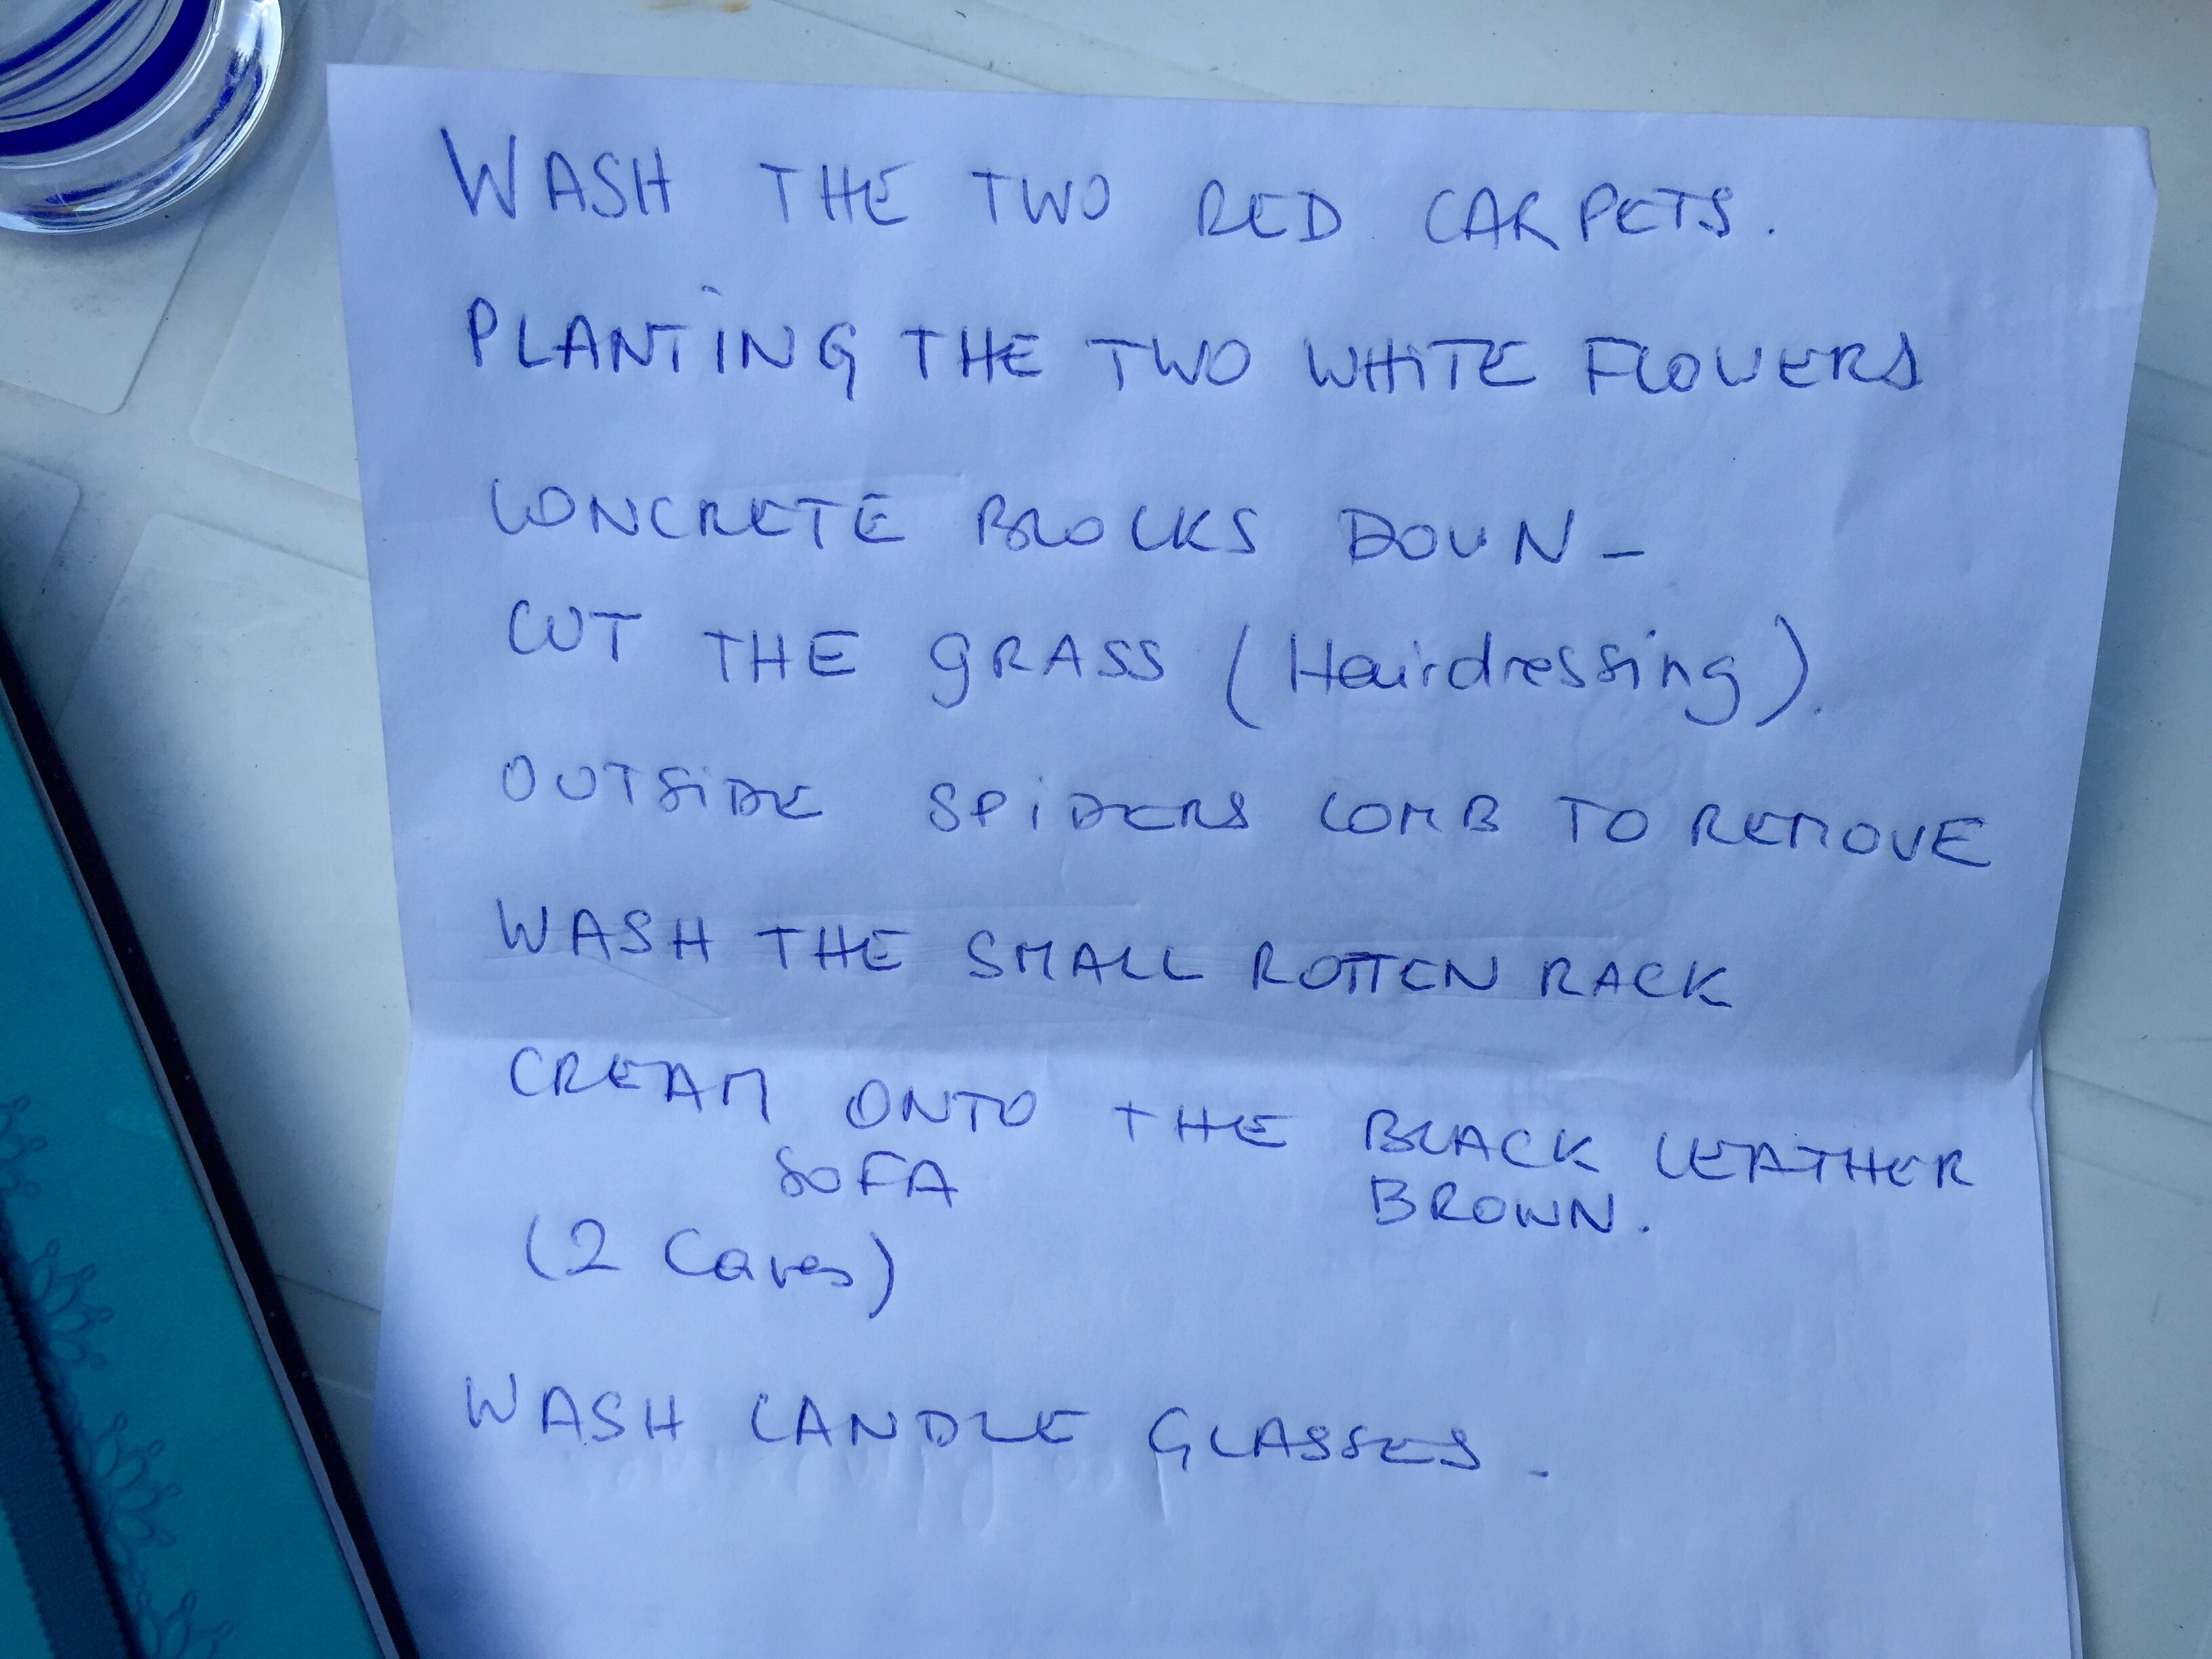 WASH THE TWO RED CARPETS.
PLANTING THE TWO WHITE FLOUERS
CONCRETE BLOCKS DOUN -
CUT THE GRASS (Hairdressing).
OUTSIDE SPIDERS COMB TO REMOVE
WASH THE SMALL ROTTEN RACK
CREAM ONTO THE BLACK LEATHER
SOFA BROWN.
(2 Cares)
WASH CANDLE GLASSES.